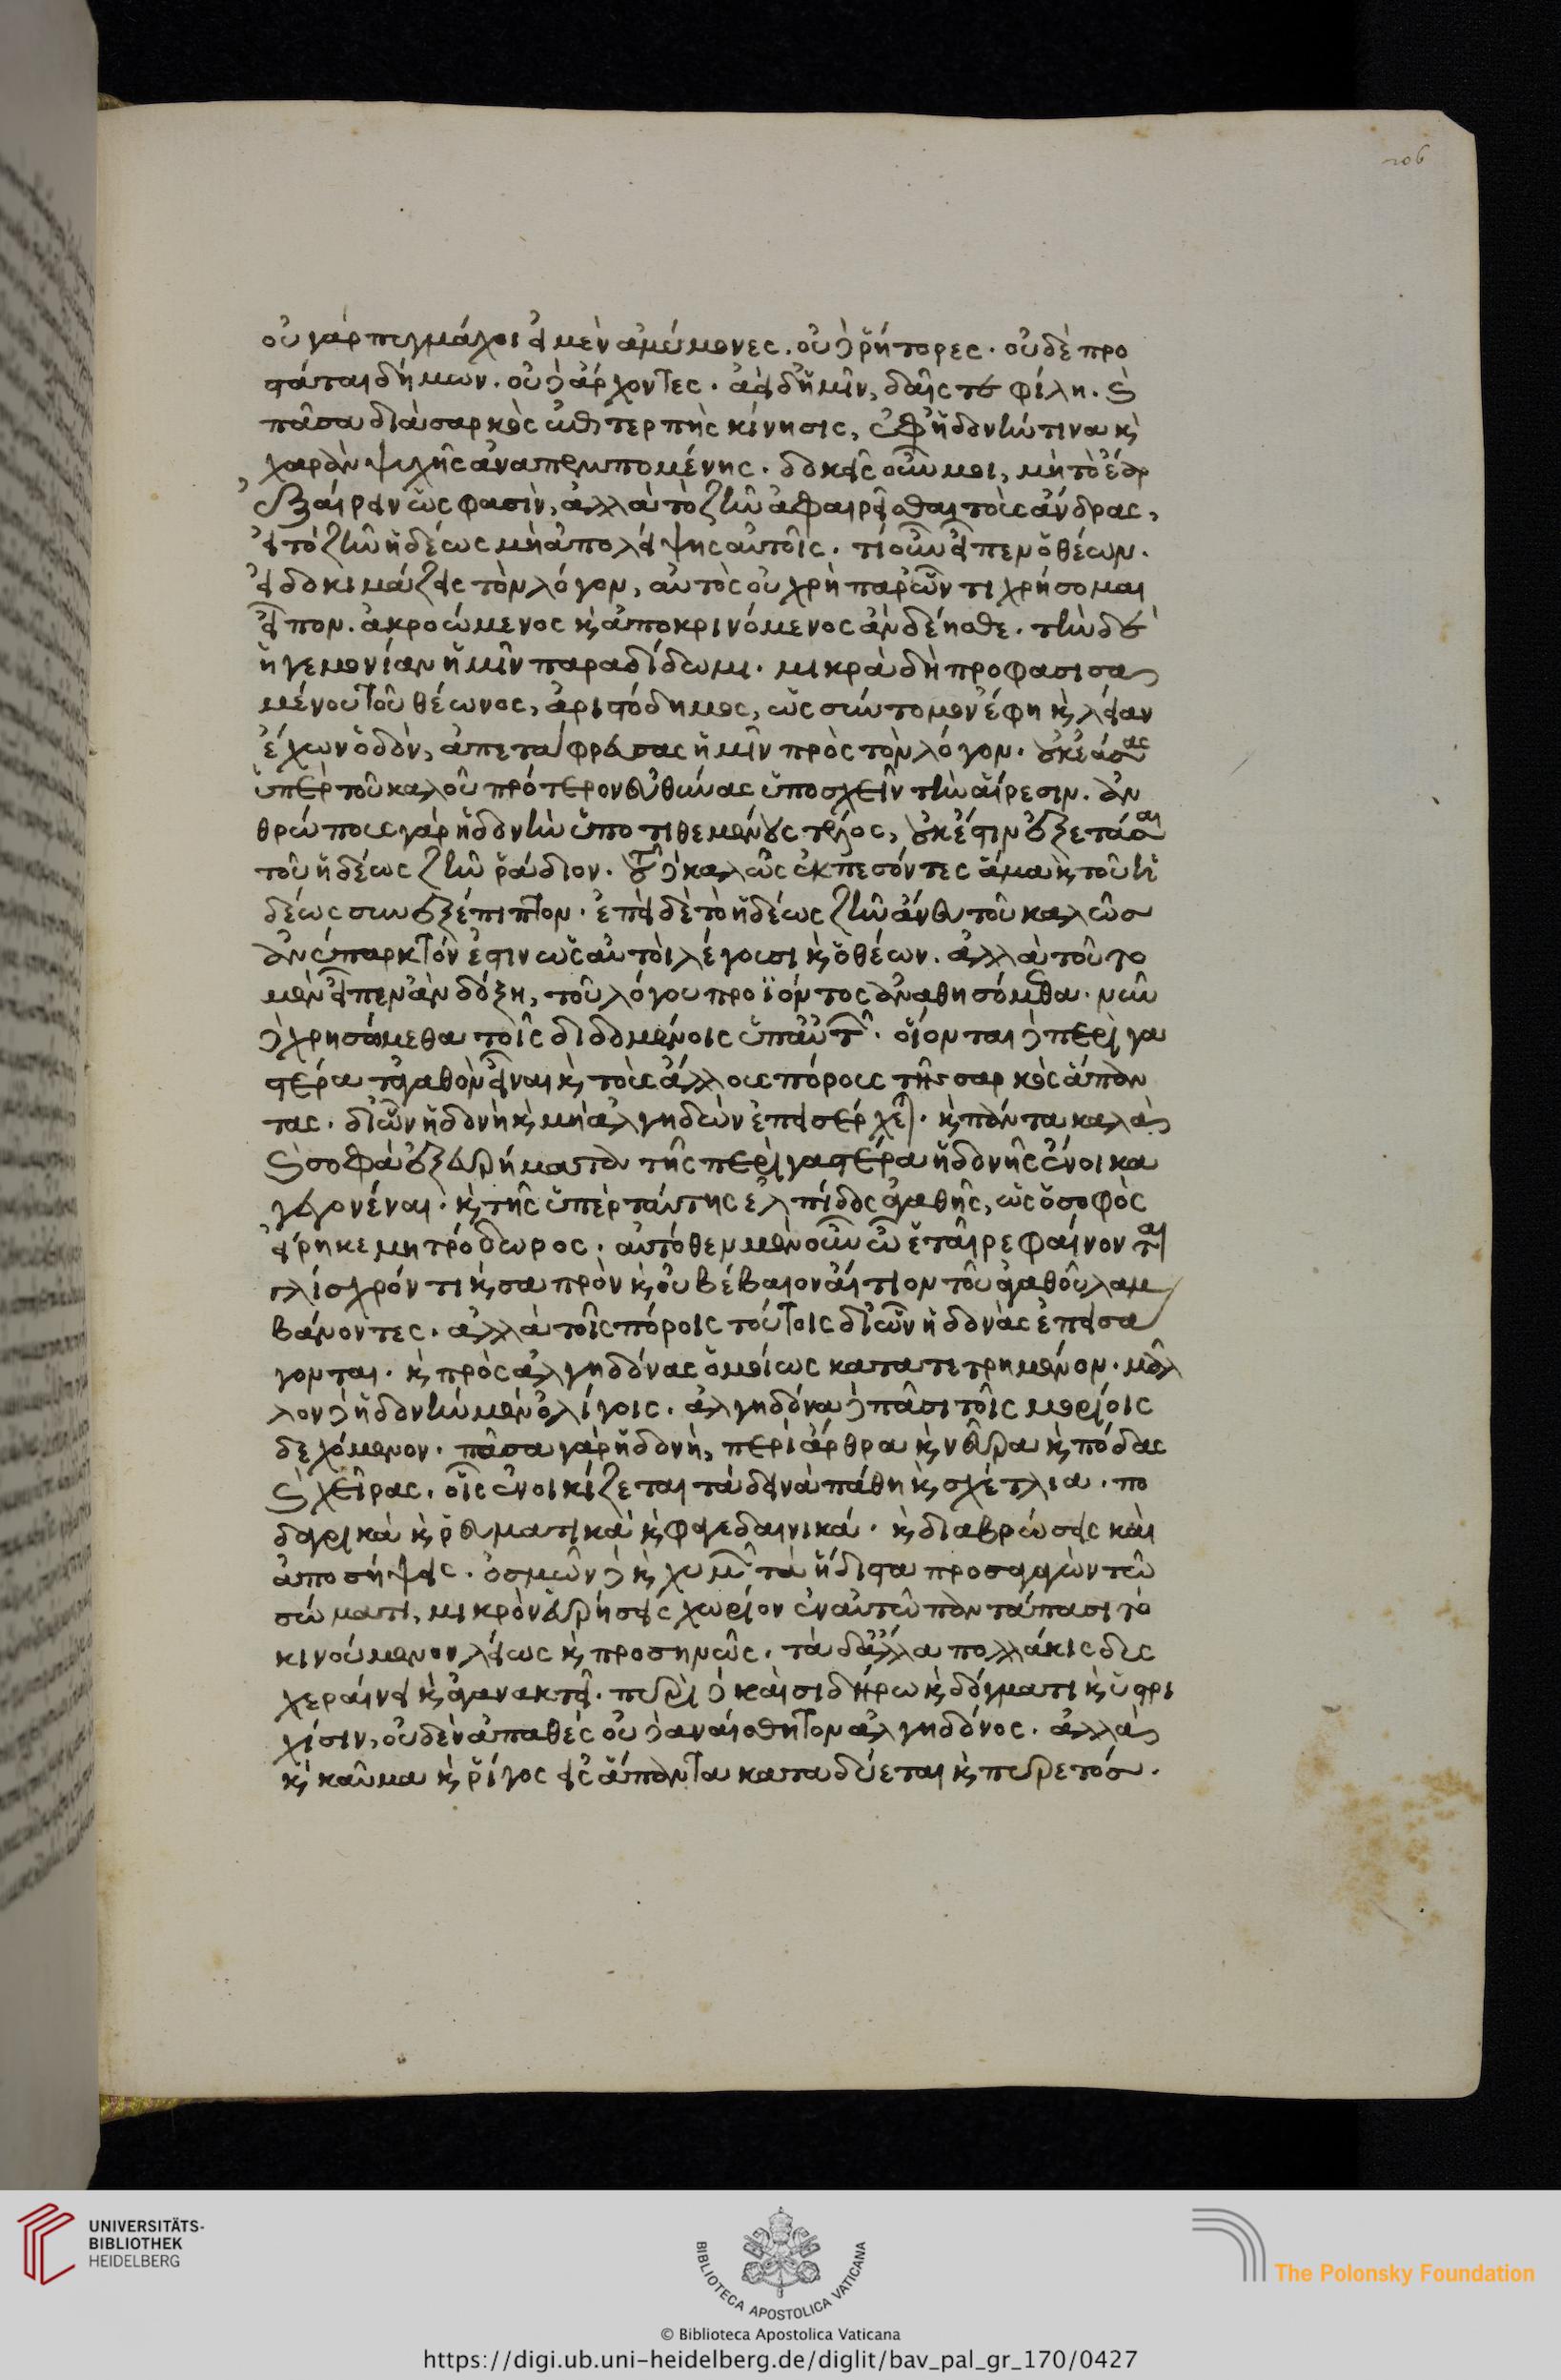 206
οὐ γὰρ πυγμάχοι εἰμὲν ἀμύμονες. οὐδὲ ῥήτορες. οὐδὲ προ
στάται δήμων. οὐδὲ ἄρχοντες. ἀεὶ δ' ἡμῖν, δαῖς τε φίλη. καὶ
πᾶσα διὰ σαρκὸς ἐπιτερπὴς κίνησις, ἐφ' ἡδονήν τινα καὶ
χαρὰν ψυχῆς ἀναπεμπομένης. δοκεῖς οὖν μοι, μὴ τὸ ἔαρ
ἐξαίρειν ὥς φασὶν, ἀλλὰ τὸ ζῆν ἀφαιρεῖσθαι τοὺς ἄνδρας,
εἰ τὸ ζῆν ἡδέως μὴ ἀπολείψῃς αὐτοῖς. τί οὖν εἶπεν ὁ θέων.
εἰ δοκιμάζεις τὸν λόγον, αὐτὸς οὐ χρὴ παρὼν τι χρήσομαι
εἶπον. ἀκροώμενος καὶ ἀποκρινόμενος ἂν δέησθε. τὴν δὲ
ἡγεμονίαν ἡμῖν παραδίδωμι. μικρὰ δὴ προφασισα
μένου τοῦ θέωνος, ἀριστόδημος, ὡς σύντομον ἔφη καὶ λείαν
ἔχων ὁδὸν, ἀπεταφρευσας ἡμῖν πρὸς τὸν λόγον. οὐκ ἐάσας
ὑπὲρ τοῦ καλοῦ πρότερον εὐθύνας ὑποσχεῖν τὴν αἵρεσιν. ἀν
θρώπους γὰρ ἡδονὴν ὑποτιθεμένους τέλος, οὐκ ἔστιν ἐξετάσαι
τοῦ ἡδέως ζῆν ῥάδιον. τοῦ δὲ καλῶς ἐκπεσόντες ἅμα καὶ τοῦ ἡ
δέως συνεξέπιπτον. ἐπεὶ δὲ τὸ ἡδέως ζῆν ἄνευ τοῦ καλῶς
ἀνύπαρκτόν ἐστιν ὡς αὐτοὶ λέγουσι καὶ ὁ θέων. ἀλλὰ τοῦτο
μὲν εἶπεν ἂν δόξῃ, τοῦ λόγου προϊόντος ἀναθησόμεθα. νῦν
δὲ χρησώμεθα τοῖς διδομένοις ὑπ' αὐτῶν. οἴονται δὲ περὶ γα
στέρα τἀγαθὸν εἶναι καὶ τοὺς ἄλλους πόρους τῆς σαρκὸς ἅπαν
τας. δι' ὧν ἡδονὴ καὶ μὴ ἀλγηδὼν ἐπεισέρχεται. καὶ πάντα καλὰ
καὶ σοφὰ ἐξευρήματα τῆς περὶ γαστέρα ἡδονῆς ἕνοικα
γεγονέναι. καὶ τῆς ὑπὲρ ταύτης ἐλπίδος ἀγαθῆς, ὡς ὁ σοφὸς
εἴρηκε μητρόδωρος. αὐτόθεν μὲν οὖν ὦ ἑταῖρε φαίνονται
γλίσχρόν τι καὶ σαπρὸν καὶ οὐ βέβαιον αἴτιον τοῦ ἀγαθοῦ λαμ
βάνοντες. ἀλλὰ τοῖς πόροις τούτοις δι' ὧν ἡδονὰς ἐπεισά
γονται. καὶ πρὸς ἀλγηδόνας ὁμοίως κατατετρημένον. μᾶλ
λον δὲ ἡδονὴν μὲν ὀλίγοις. ἀλγηδόνα δὲ πᾶσι τοῖς μορίοις
δεχόμενον. πᾶσα γὰρ ἡδονὴ, περὶ ἄρθρα καὶ νεῦρα καὶ πόδας
καὶ χεῖρας. οἷς ἐνοικίζεται τὰ δεινὰ πάθη καὶ σχέτλια. πο
δαγρικὰ καὶ ῥευματικὰ καὶ φαγεδαινικά. καὶ διαβρώσεις καὶ
ἀποσήψεις. ὀσμῶν δὲ καὶ χυμῶν τὰ ἥδιστα προσαγαγὼν τῷ
σώματι, μικρὸν εὑρήσεις χωρίον ἐν αὐτῷ παντάπασι τὸ
κινούμενον λείως καὶ προσηνῶς. τὰ δ' ἄλλα πολλάκις δυς
χεραίνει καὶ ἀγανακτεῖ. πυρὶ δὲ καὶ σιδήρω καὶ δόγματι καὶ ὑστρι
χίσιν, οὐδὲν ἀπαθὲς οὐδὲ ἀναίσθητον ἀλγηδόνος. ἀλλὰ
καὶ καῦμα καὶ ῥίγος εἰς ἅπαντα καταδύεται καὶ πυρετός.
UNIVERSITÄTS-
BIBLIOTHEK
HEIDELBERG
BIBLIOTECA APOSTOLICA VATICANA
The Polonsky Foundation
© Biblioteca Apostolica Vaticana
https://digi.ub.uni-heidelberg.de/diglit/bav_pal_gr_170/0427